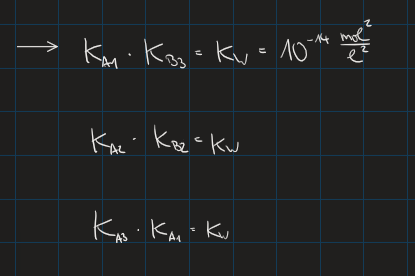 → K_A1 · K_B3 = K_W = 10^-14 mol²/l²
K_A2 · K_B2 = K_W
K_A3 · K_A1 = K_W